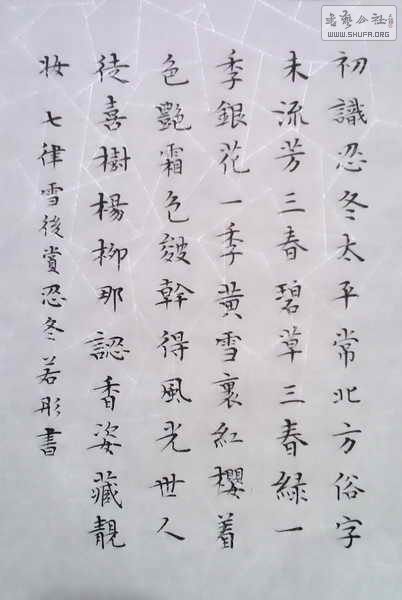 初識忍冬太平常北方俗字
未流芳三春碧草三春綠一
季銀花一季黃雪裏紅櫻着
色艷霜色皴幹得風光世人
徒喜樹楊柳那認香姿藏靚
妝 七律雪後賞忍冬若彤書
書藝公社
WWW.SHUFA.ORG